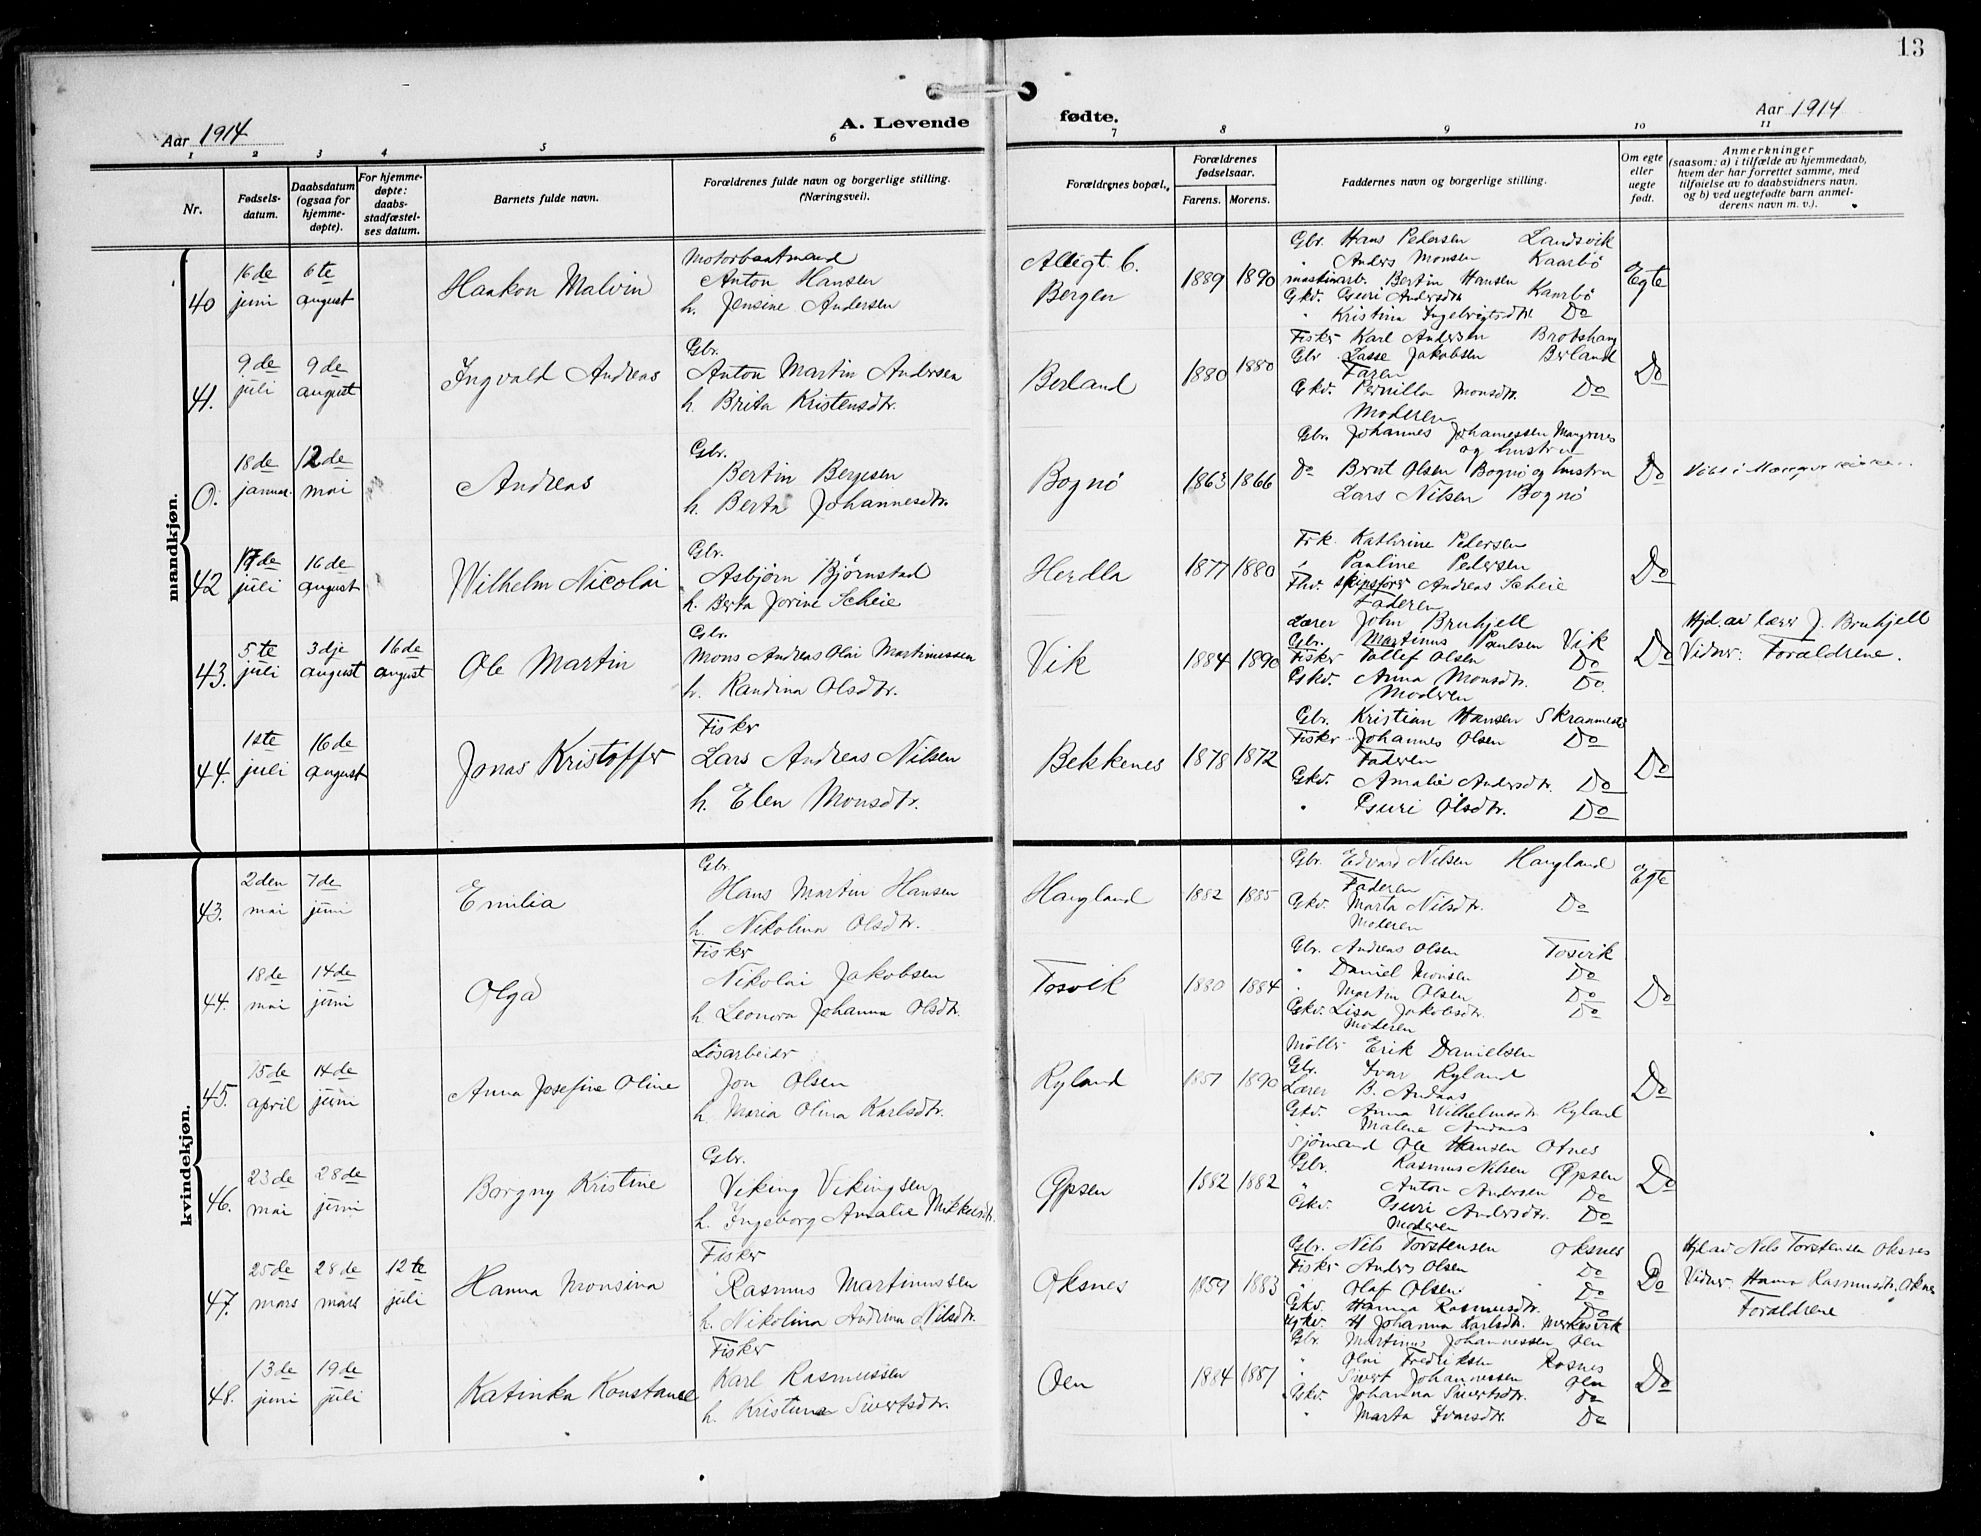 13
Aar 1914
A. Levende
fødte.
Aar 1914
1 2 3 4 5 6 7 8 9 10 11
Nr.
Fødsels-
datum.
Daabsdatum
(ogsaa for
hjemme-
døpte).
For hjemme-
døpte:
daabs-
stadfæstel-
ses datum.
Barnets fulde navn.
Forældrenes fulde navn og borgerlige stilling.
(Næringsvei).
Forældrenes bopæl.
Forældrenes
fødselsaar.
Farens. Morens.
Faddernes navn og borgerlige stilling.
Om egte
eller
uegte
født.
Anmerkninger
(saasom: a) i tilfælde av hjemmedaab,
hvem der har forrettet samme, med
tilføielse av to daabsvidners navn.
og b) ved uegtefødte barn anmel-
derens navn m. v.).
mandkjøn.
40
16de
juni
6te
august
Haakon Malvin
Motorbaatmand
Anton Hansen
h. Jensine Andersen
Bergen
1889 1890
Gbr. Hans Pedersen Landsvik
" Anders Monsen Kaarbø
maskinarb. Bertin Hansen Kaarbø
Gkv. Guri Andersdtr.
" Kristina Ingebrigtsdtr. Do
Egte
41.
9de
juli
9de
august
Ingvald Andreas
Gbr.
Anton Martin Andersen
h. Brita Kristensdtr.
Berland
1880 1880
Fisker Karl Andersen
Gbr Lasse Jakobsen Berland
Faren
Gkv. Pernilla Monsdtr. Do
Moderen
Do
0.
18de
januar.
12de
mai
Andreas
Gbr.
Bertin Berjesen
h. Berta Johannesdtr.
Bognø
1863 1866
Gbr. Johannes Johannessen
og hustru
Do Bernt Olsen Bognø og hustru
Lars Nilsen Bognø
Do
42
17de
juli
16de
august
Wilhelm Nicolai
Gbr.
Asbjørn Bjørnstad
h. Berta Jorine Scheie
Herdla
1877 1880
Frk. Kathrine Pedersen
" Pauline Pedersen
Fhv. skipsfører Andreas Scheie
Faderen
Do
43.
5te
juli
3dje
august
16de
august
Ole Martin
Gbr.
Mons Andreas Olai Martinussen
h. Randina Olsdtr.
Vik
1884 1890
Lærer John Bruhjell
Gbr. Martinus Paulsen Vik
Fisker Tollef Olsen Do
Gkv. Anna Monsdtr. Do.
Moderen
Do
Hjd. av lærer J. Bruhjell
Vidner: Forældrene.
44.
1ste
juli
16de
august
Jonas Kristoffer
Fisker
Lars Andreas Nilsen
h. Elen Monsdtr.
Bekkenes
1878 1872
Gbr. Kristian Hansen
Fisker Johannes Olsen Do
Faderen
Gkv. Amalie Andersdtr. Do
" Guri Olsdtr. Do
Do
kvindekjøn.
43.
2den
mai
7de
juni
Emilia
Gbr.
Hans Martin Hansen
h. Nikolina Olsdtr.
Haugland
1882 1885
Gbr. Edvard Nilsen Haugland
Faderen
Gkv. Marta Nilsdtr. Do
Moderen
Egte
44.
18de
mai
14de
juni
Olga
Fisker
Nikolai Jakobsen
h. Leonora Johanna Olsdtr.
Tosvik
1880 1884
Gbr. Andreas Olsen Tosvik
" Daniel Monsen Do
" Martin Olsen Do
Gkv. Lisa Jakobsdtr. Do
Moderen
Do
45.
15de
april
14de
juni
Anna Josefine Oline
Løsarbeider
Jon Olsen
h. Maria Olina Karlsdtr.
Ryland
1890
Møller Erik Danielsen
Gbr. Ivar Ryland
Lærer B. Andaas
Gkv. Anna Wilhelmsdtr. Ryland
" Malene Andaas
Do
46.
23de
mai
28de
juni
Borgny Kristine
Gbr.
Viking Vikingsen
h. Ingeborg Amalie Mikkelsdtr.
Gjpsen
1882 1882
Sjømand Ole Hansen Otnes
Gbr. Rasmus Nilsen Gjpsen
" Anton Andersen Do
Gkv. Guri Andersdtr. Do
Moderen
Do
47.
25de
mars
28de
mars
12te
juli
Hanna Monsina
Fisker
Rasmus Martinussen
h. Nikolina Andrina Nilsdtr.
Oksnes
1883
Gbr. Nils Torstensen Oksnes
Fisker Anders Olsen Do
" Olaf Olsen Do
Gkv. Hanna Rasmusdtr. Do
H Johanna Karlsdtr. Merkesvik
Do
Hjd av Nels Torstensen Oksnes
Vidner: Hanna Rasmusdtr. Oksnes
Forældrene
48.
13de
juni
19de
juli
Katinka Konstance
Fisker
Karl Rasmussen
h. Kristina Sivertsdtr.
Oen
1884 1887
Gbr. Martinus Johannessen Oen
" Olai Fredriksen Rosnes
" Sivert Johannessen Oen
Gkv. Johanna Sivertsdtr. Do
" Marta Ivarsdtr. Do
Do